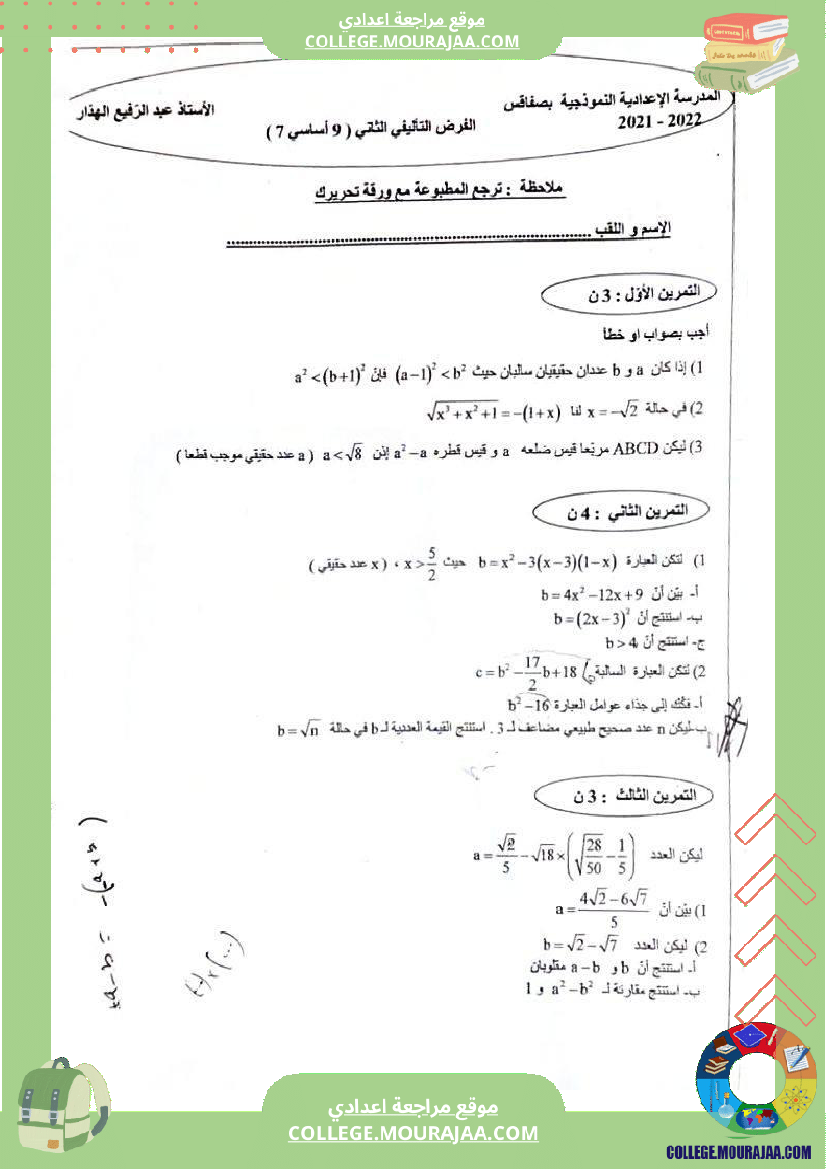 موقع مراجعة اعدادي
COLLEGE.MOURAJAA.COM
المدرسة الإعدادية النموذجية بصفاقس
2021 - 2022
الفرض التأليفي الثاني ( 9 أساسي 7 )
الأستاذ عبد الرفيع الهدّار
ملاحظة : ترجع المطبوعة مع ورقة تحريرك
الإسم و اللقب ................................................................................
التمرين الأوّل : 3 ن
أجب بصواب او خطأ
1) إذا كان a و b عددان حقيقيان سالبان حيث (a−1)² < b² فإنّ a² < (b+1)²
2) في حالة x = −√2 لنا √(x³ + x² + 1) = −(1+x)
3) ليكن ABCD مربّعا قيس ضلعه a و قيس قطره a² − a إذن a < √8 ( a عدد حقيقي موجب قطعا )
التمرين الثاني : 4 ن
1) لتكن العبارة b = x² − 3(x−3)(1−x) حيث x > 5/2 ، ( x عدد حقيقي )
أ- بيّن أنّ b = 4x² − 12x + 9
ب- استنتج أنّ b = (2x − 3)²
ج- استنتج أنّ b > 4
2) لتكن العبارة السالبة c = b² − 17/2 b + 18
أ- فكّك إلى جذاء عوامل العبارة b² − 16
ب- ليكن n عدد صحيح طبيعي مضاعف لـ 3 . استنتج القيمة العددية لـ b في حالة b = √n
التمرين الثالث : 3 ن
ليكن العدد a = √2/5 − √18 × (√(28/50) − 1/5)
1) بيّن أنّ a = (4√2 − 6√7)/5
2) ليكن العدد b = √2 − √7
أ- استنتج أنّ b و a − b مقلوبان
ب- استنتج مقارنة لـ a² − b² و 1
موقع مراجعة اعدادي
COLLEGE.MOURAJAA.COM
COLLEGE.MOURAJAA.COM